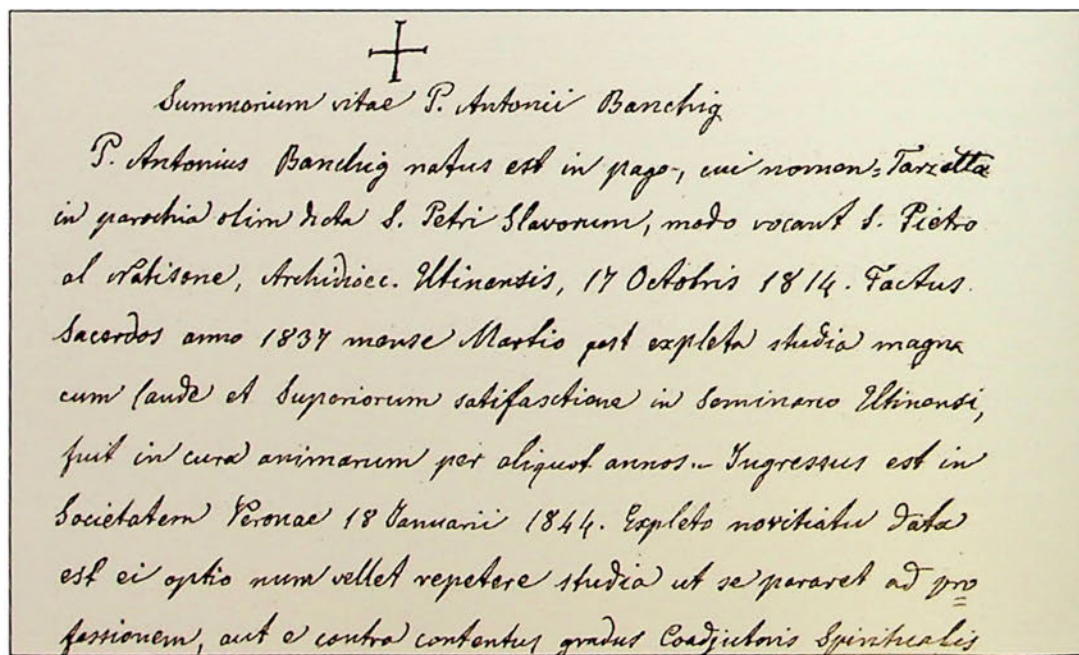 Summarium vitae P. Antonii Banchig
P. Antonius Banchig natus est in pago, cui nomen = Tarzetta
in parochia olim dicta S. Petri Slavorum, modo vocant S. Pietro
al Natisone, Archidioec. Utinensis, 17 Octobris 1814. Factus
Sacerdos anno 1837 mense Martio post expleta studia magna
cum laude et Superiorum satisfactione in Seminario Utinensi,
fuit in cura animarum per aliquot annos. - Ingressus est in
Societatem Veronae 18 Januarii 1844. Expleto novitiatu data
est ei optio num vellet repetere studia ut se pararet ad pro
fessionem, aut e contra contentus gradus Coadjutoris Spiritualis